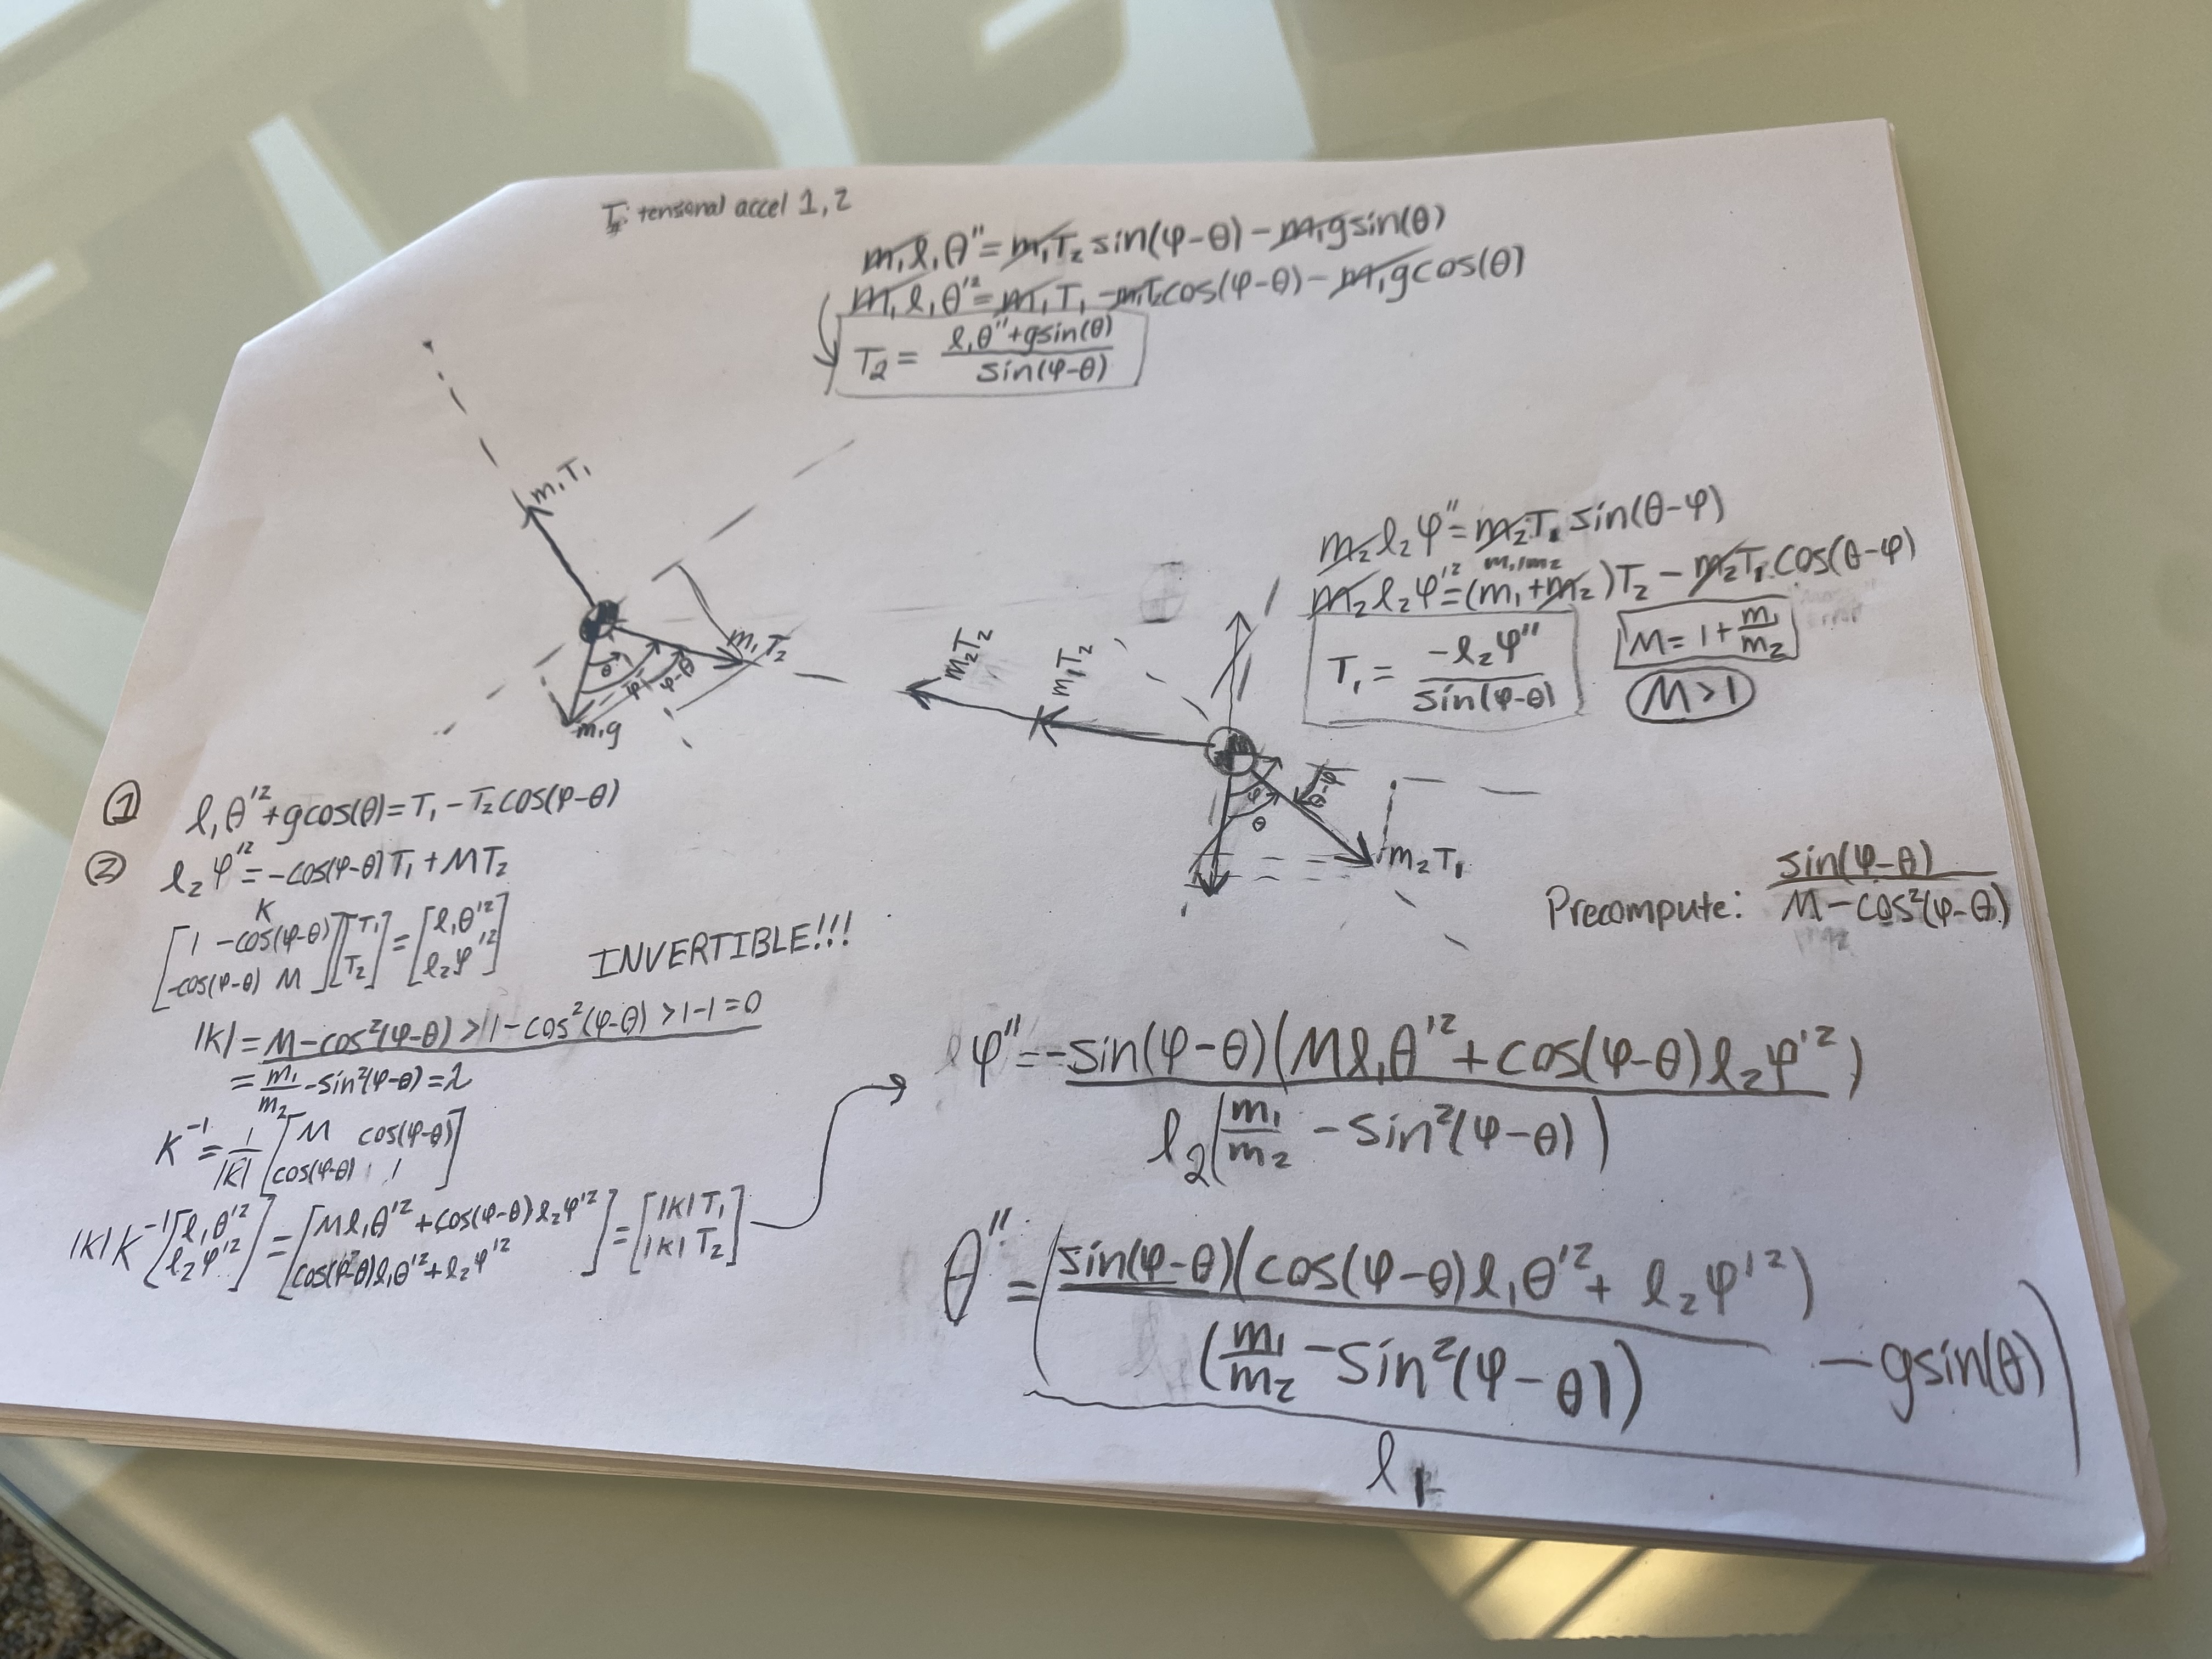 T: tensional accel 1,2
m₁l₁θ''=m₁T₂sin(φ-θ)-m₁gsin(θ)
m₁l₁θ'²=m₁T₁-m₁T₂cos(φ-θ)-m₁gcos(θ)
T₂= (l₁θ''+gsin(θ))/(sin(φ-θ))
m₁T₁
m₁T₂
θ φ φ-θ
m₁g
m₂l₂φ''=m₂T₁sin(θ-φ)
m₁/m₂
m₂l₂φ'²=(m₁+m₂)T₂-m₂T₁cos(θ-φ)
T₁= (-l₂φ'')/(sin(φ-θ))
M=1+m₁/m₂
M>1
m₂T₂
m₁T₂
φ
θ-φ
θ
m₂T₁
① l₁θ'²+gcos(θ)=T₁-T₂cos(φ-θ)
② l₂φ'²=-cos(φ-θ)T₁+MT₂
K
[1 -cos(φ-θ)][T₁]=[l₁θ'²]
[-cos(φ-θ) M][T₂] [l₂φ'²]
INVERTIBLE!!!
|K|=M-cos²(φ-θ)>1-cos²(φ-θ)>1-1=0
=m₁/m₂-sin²(φ-θ)=λ
K⁻¹=1/|K| [M cos(φ-θ)]
[cos(φ-θ) 1]
|K|K⁻¹[l₁θ'²]=[Ml₁θ'²+cos(φ-θ)l₂φ'²]=[|K|T₁]
[l₂φ'²] [cos(φ-θ)l₁θ'²+l₂φ'²] [|K|T₂]
Precompute: sin(φ-θ)/(M-cos²(φ-θ))
φ''=-sin(φ-θ)(Ml₁θ'²+cos(φ-θ)l₂φ'²)
l₂(m₁/m₂-sin²(φ-θ))
θ''=(sin(φ-θ)(cos(φ-θ)l₁θ'²+l₂φ'²)
(m₁/m₂-sin²(φ-θ)) -gsin(θ))
l₁